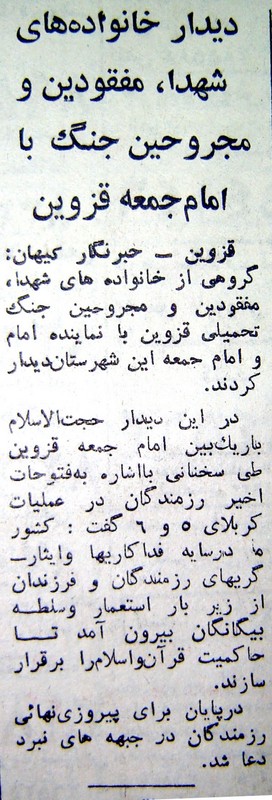 دیدار خانواده‌های
شهدا، مفقودین و
مجروحین جنگ با
امام‌جمعه قزوین
قزوین ــ خبرنگار کیهان:
گروهی از خانواده های شهدا،
مفقودین و مجروحین جنگ
تحمیلی قزوین با نماینده امام
و امام جمعه این شهرستان‌دیدار
کردند.
در این دیدار حجت‌الاسلام
باریک‌بین امام جمعه قزوین
طی سخنانی بااشاره به‌فتوحات
اخیر رزمندگان در عملیات
کربلای ۵ و ۶ گفت : کشور
ما درسایه فداکاریها وایثار‌ــ
گریهای رزمندگان و فرزندان
از زیر بار استعمار وسلطه
بیگانگان بیرون آمد تــا
حاکمیت قرآن‌واسلام‌را برقرار
سازند.
درپایان برای پیروزی‌نهائی
رزمندگان در جبهه های نبرد
دعا شد.